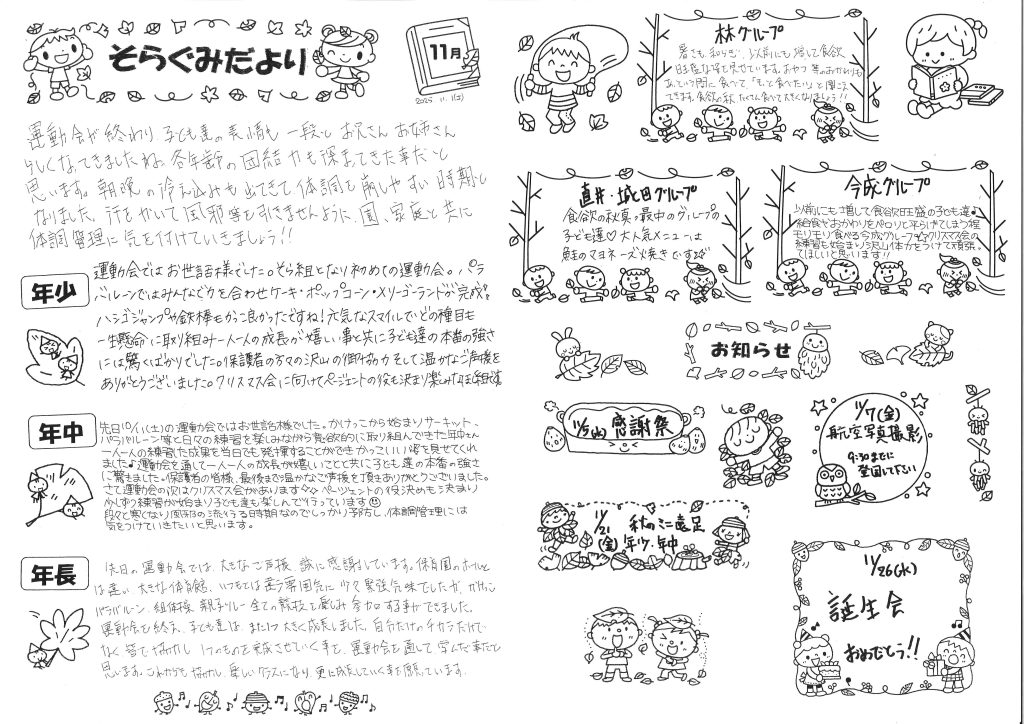 そらぐみだより
11月
2025 11.1(土)
運動会が終わり子ども達の表情も一段とお兄さんお姉さん
らしくなってきましたね。各年齢の団結力も深まってきた事だと
思います。朝晩の冷え込みも出てきて体調を崩しやすい時期と
なりました。汗をかいて風邪等を引きませんように、園、家庭と共に
体調管理に気を付けていきましょう!!
年少
運動会ではお世話様でした。そら組となり初めての運動会。パラ
バルーンではみんなで力を合わせケーキ・ポップコーン・メリーゴーランドが完成。
ハシゴジャンプや鉄棒もかっこ良かったですね!元気なスマイルでどの種目も
一生懸命に取り組み一人一人の成長が嬉しい事と共に子ども達の本番の強さ
には驚くばかりでした。保護者の方々の沢山の御協力そして温かなご声援を
ありがとうございました。クリスマス会に向けてページェントの役も決まり楽しみな
年中
先日10/11(土)の運動会ではお世話様でした。かけっこから始まりサーキット、
パラバルーン等と日々の練習を楽しみながら意欲的に取り組んできた年中さん
一人一人の練習した成果を当日でも発揮することができかっこいい姿を見せてくれ
ました♪運動会を通して一人一人の成長が嬉しいことと共に子ども達の本番の強さ
に驚きました。保護者の皆様、最後まで温かなご声援を頂きありがとうございました。
さて運動会の次はクリスマス会があります☆☆ページェントの役決めも決まり
少しずつ練習が始まり子ども達も楽しんで行っています
段々と寒くなり風邪の流行る時期なのでしっかり予防し、体調管理には
気をつけていきたいと思います。
年長
先日の運動会では、大きなご声援、誠に感謝しています。保育園のホールと
は違い、大きな体育館、いつもとは違う雰囲気に少々緊張気味でしたが、かけっこ
パラバルーン、組体操、親子リレー全ての競技を楽しみ参加する事ができました。
運動会を終え、子ども達は、また1つ大きく成長しました。自分だけのチカラだけで
なく皆で協力し1つのものを完成させていく事を、運動会を通して学んだ事だと
思います。これからも協力し、優しいクラスになり、更に成長していく事を願っています。
林グループ
暑さも和らぎ、以前にも増して食欲
旺盛な姿を見せています。おやつ等のおかわりも
あっという間に食べて、「もっと食べたい」と聞こえ
てきます。食欲の秋、たくさん食べて大きくなりましょう!!
直井・城田グループ
食欲の秋真っ最中のグループの
子ども達♡大人気メニューは
鮭のマヨネーズ焼きです☆
今成グループ
以前にも増して食欲旺盛の子ども達♪
給食やおかわりをペロリと平らげてしまう程
モリモリ食べる今成グループ☆クリスマス会の
練習も始まり沢山体力をつけて頑張っ
てほしいと思います!!
お知らせ
11/5(水) 感謝祭
11/7(金)
航空写真撮影
9:30までに
登園して下さい
11/21(金) 秋のミニ遠足
年少・年中
11/26(水)
誕生会
おめでとう!!